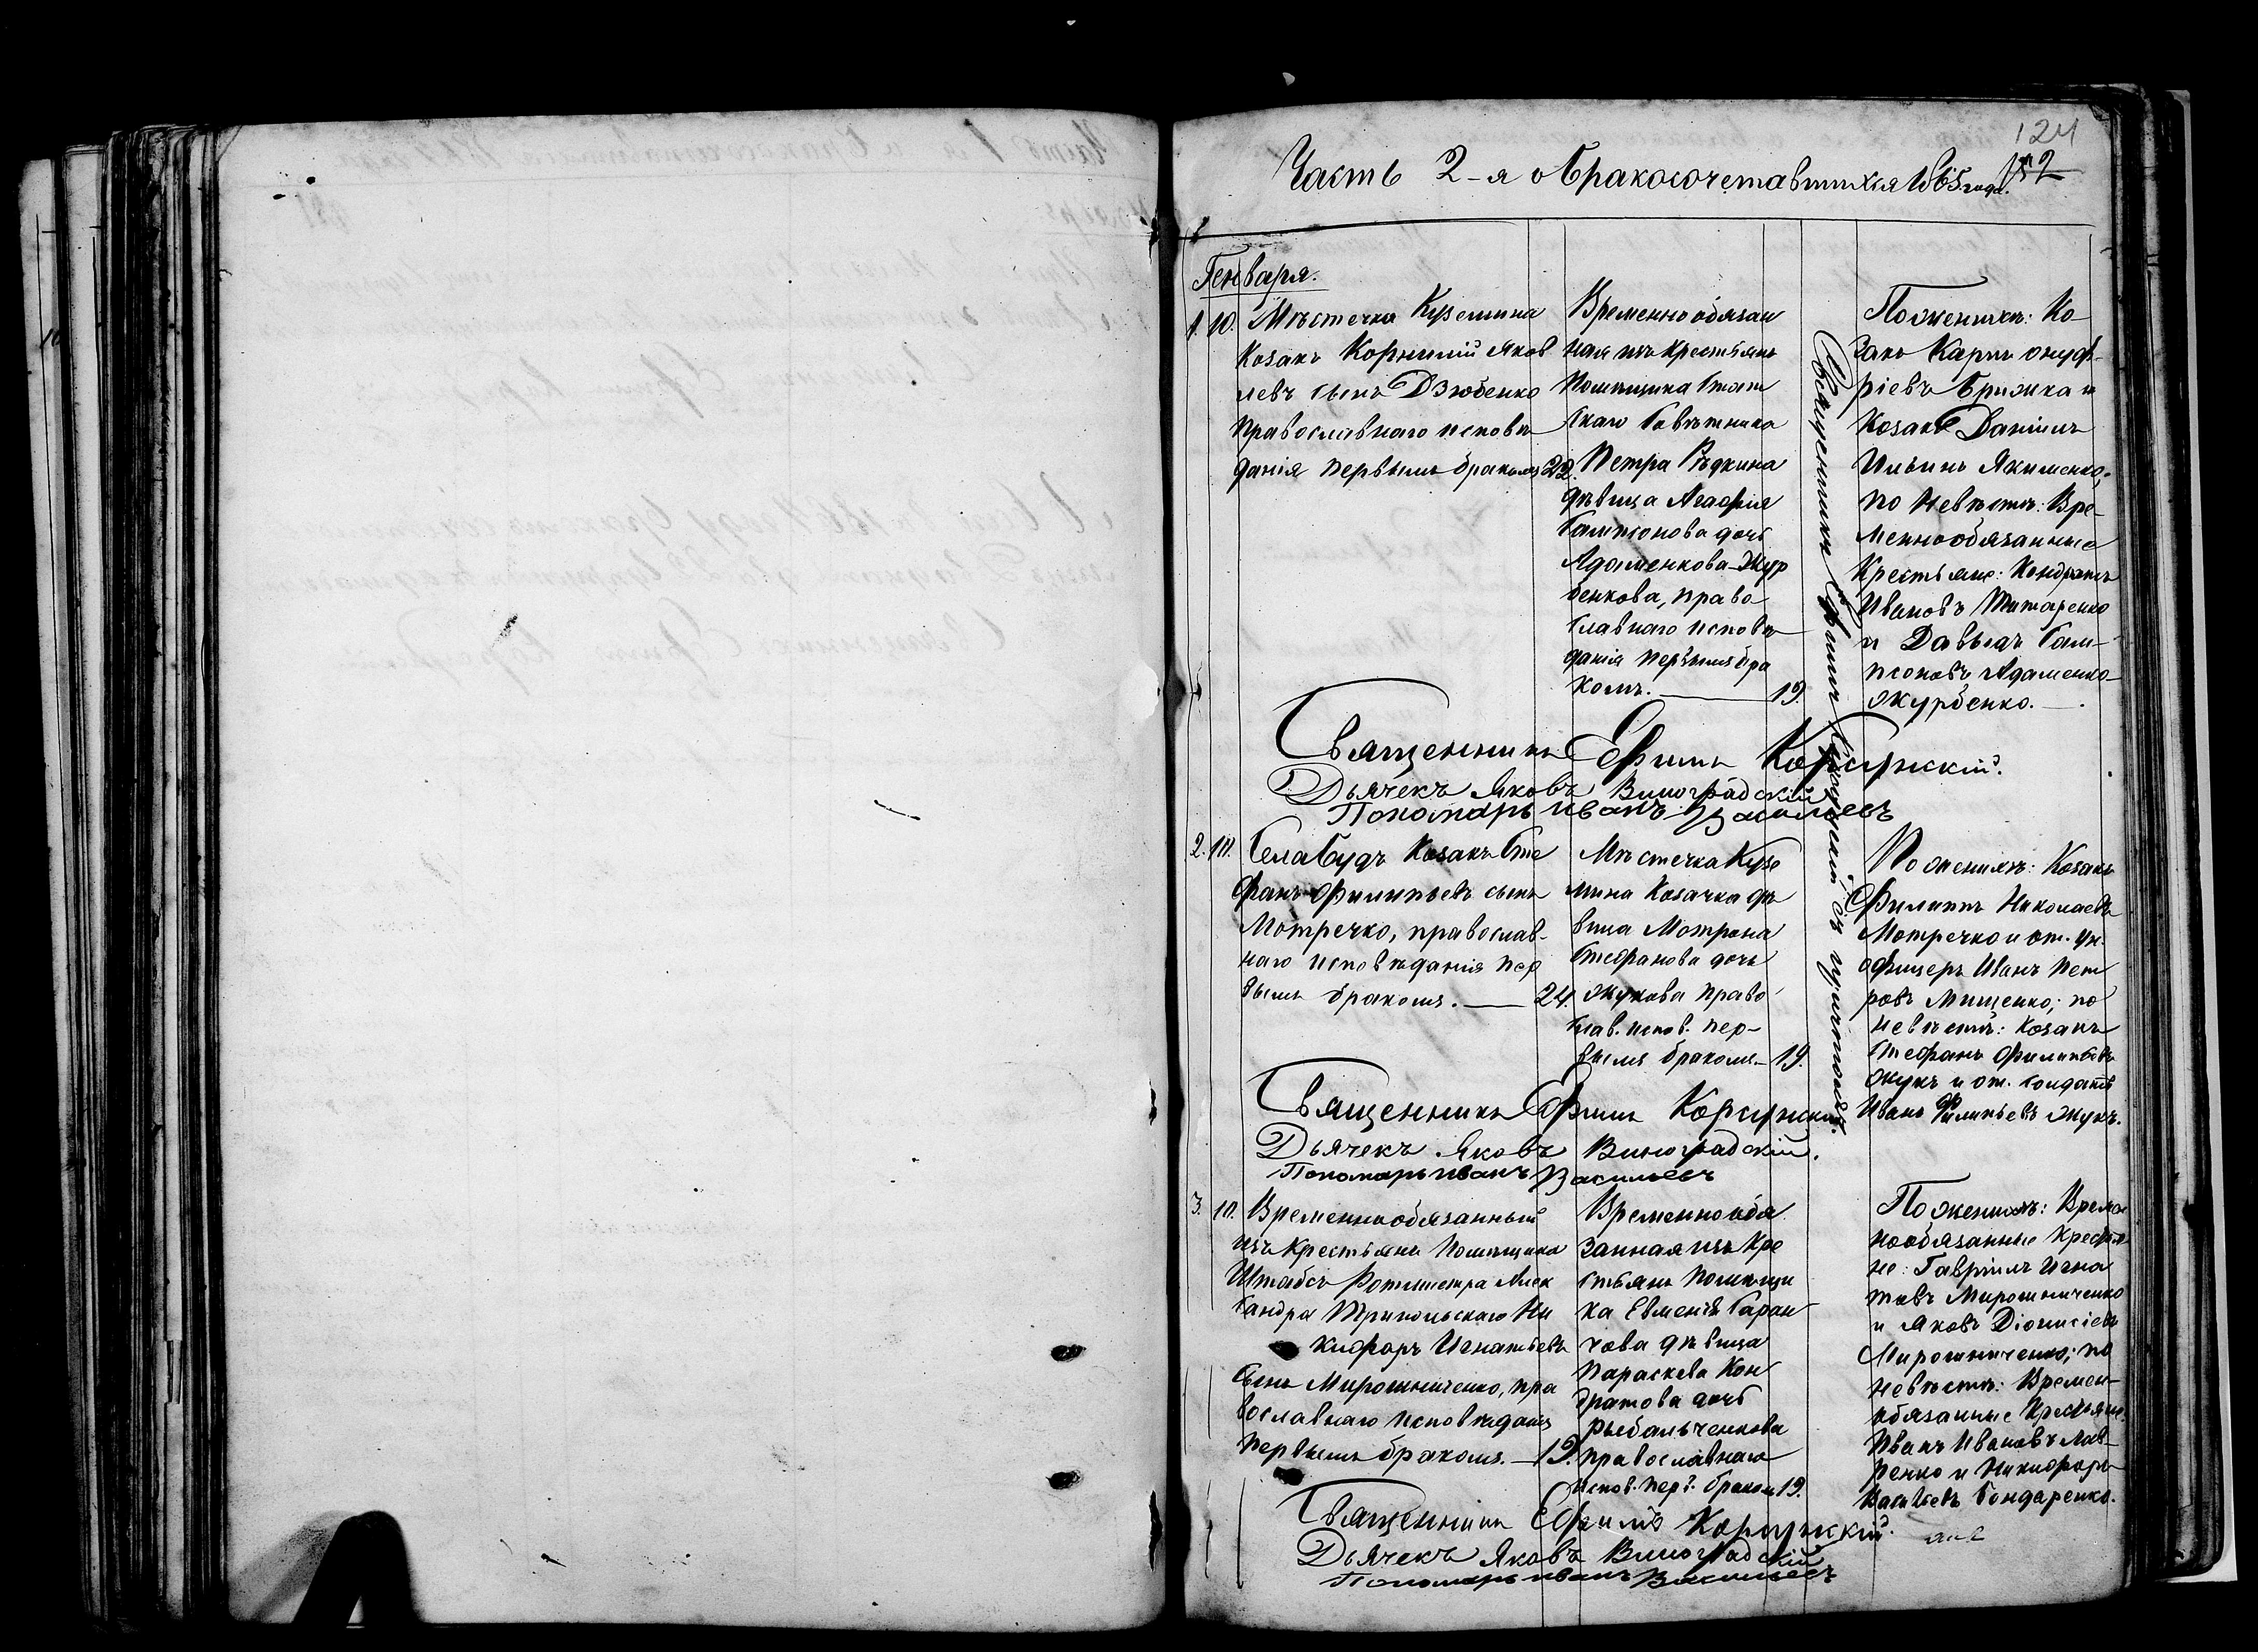 124
152
Часть 2-я о бракосочетавшихся 1865 года.
Генваря.
1. 10. Мѣстечка Куземина
Козакъ Корнилій Яков
левъ сынъ Дзюбенко
православнаго исповѣ
данія первымъ бракомъ 22.
Временнообязан
ная изъ крестьянъ
Помѣщика Стат
скаго Совѣтника
Петра Рѣдкина
дѣвица Агафія
Сампсонова дочь
Адаменкова-Жур
бенкова, право
славнаго исповѣ
данія первымъ бра
комъ. 19.
Священникъ Ефимъ Коржскій съ причтомъ.
По женихѣ: Ко
закъ Карпъ Онуф-
ріевъ Брижка и
Козакъ Даніилъ
Ильинъ Якименко;
по невѣстѣ: Вре-
меннообязанные
Крестьяне: Кондратъ
Ивановъ Титаренко
и Давыдъ Сам-
псоновъ Адаменко-
Журбенко.
Священникъ Ефимъ Коржскій.
Дьячекъ Яковъ Виноградскій
Пономарь Иванъ Васильевъ
2. 10. Села Будъ Козакъ Сте
фанъ Филипьевъ сынъ
Мотречко, православ-
наго исповѣданія пер
вымъ бракомъ. 24.
Мѣстечка Кузе
мина Козачка дѣ
вица Мотрона
Стефанова дочь
Жукова право
слав. испов. пер-
вымъ бракомъ 19.
По женихѣ: Козакъ
Филиппъ Николаевъ
Мотречко и от. ун.
офицеръ Иванъ Пет
ровъ Мищенко; по
невѣстѣ: Козакъ
Стефанъ Филипьевъ
Жукъ и от. солдатъ
Иванъ Филипьевъ Жукъ.
Священникъ Ефимъ Коржскій
Дьячекъ Яковъ Виноградскій.
Пономарь Иванъ Васильевъ
3. 10. Временнообязанный
изъ крестьянъ Помѣщика
Штабсъ Ротмистра Алек
сандра Трипольскаго Ни
кифоръ Игнатьевъ
сынъ Мирошниченко, пра
вославнаго исповѣданія
первымъ бракомъ. 19.
Временнообя
занная изъ кре
стьянъ Помѣщи
ка Евменія Саран
чова дѣвица
Параскева Кон
дратова дочь
Рыбальченкова
православнаго
испов. перв. браком 19.
По женихѣ: Време
ннообязанные Крестья
не: Гавріилъ Игна
товъ Мирошниченко
и Яковъ Діонисіевъ
Мирошниченко; по
невѣстѣ: Времен-
обязанные Крестьяне
Иванъ Ивановъ Лав-
ренко и Никифоръ
Васильевъ Бондаренко.
Священникъ Ефимъ Коржскій.
Дьячекъ Яковъ Виноградскій
Пономарь Иванъ Васильевъ